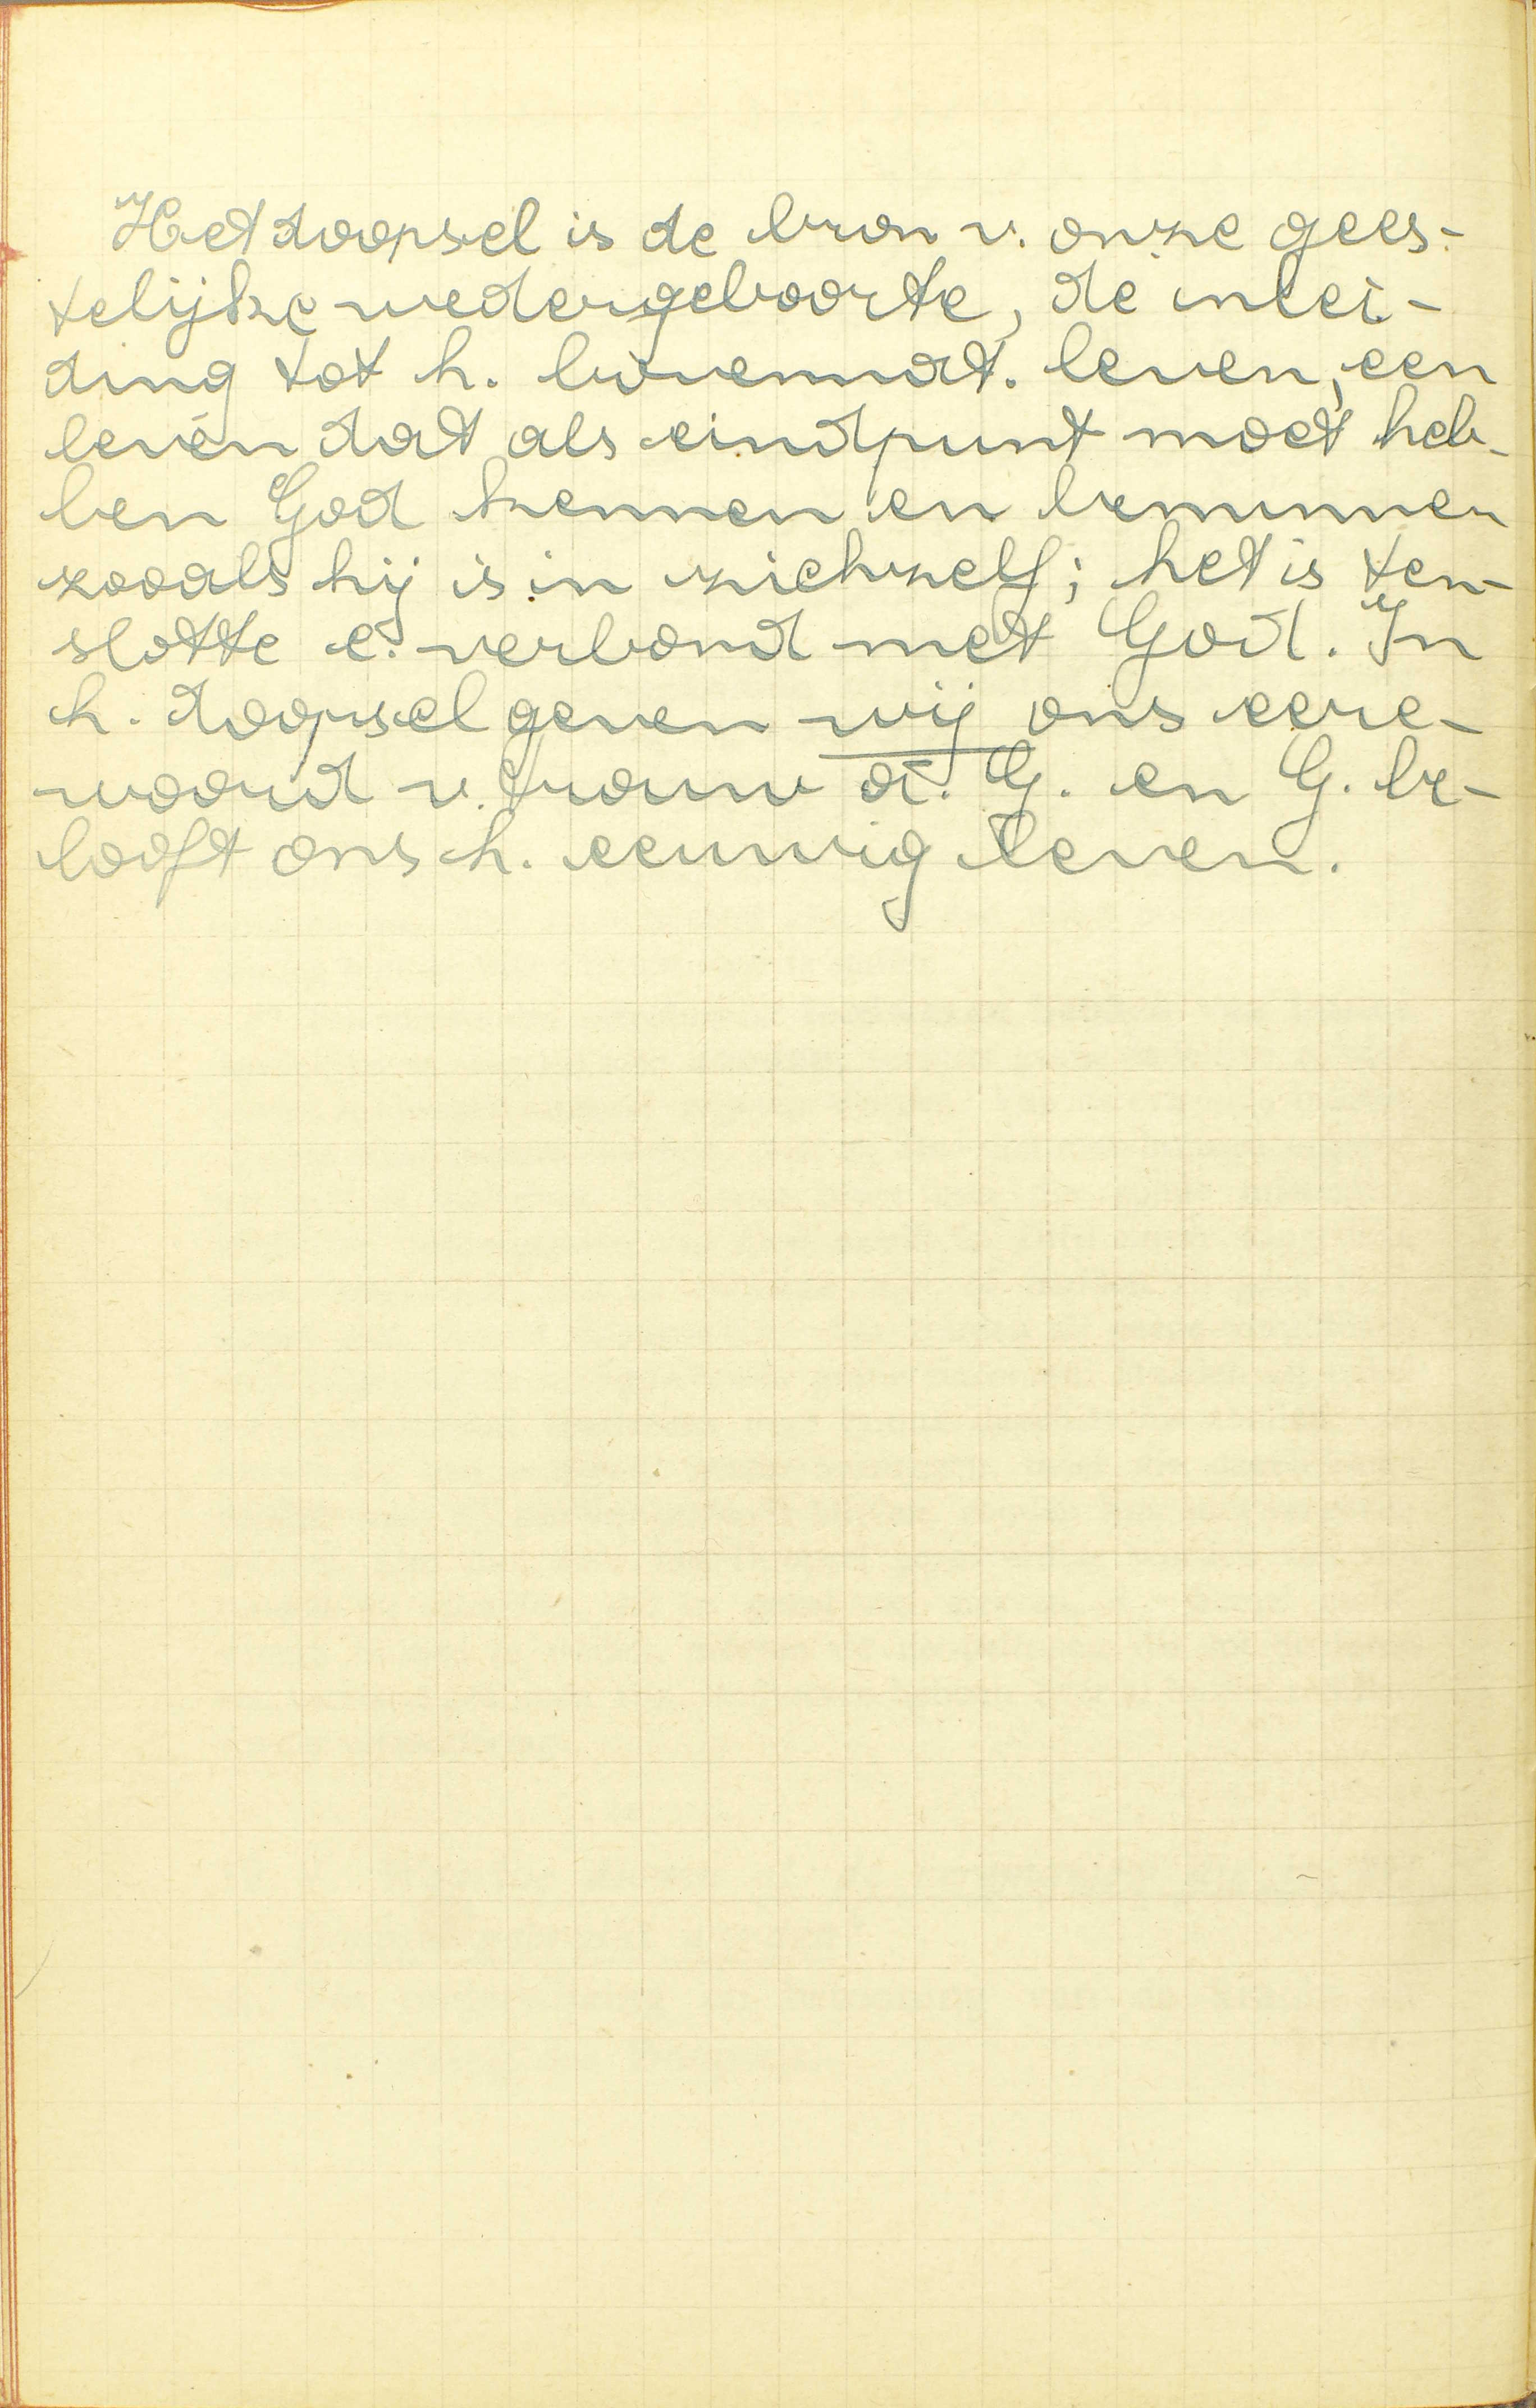 Het doopsel is de bron v. onze gees-
telijke wedergeboorte, de inlei-
ding tot h. bovennat. leven, een
leven dat als eindpunt moet heb-
ben God kennen en beminnen
zooals hij is in zichzelf; het is ten-
slotte e. verbond met God. In
h. doopsel geven wij ons eere-
woord v. trouw a. G. en G. be-
looft ons h. eeuwig leven.